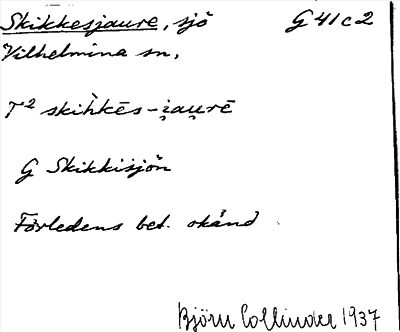 Skikkesjaure, sjö G 41 c 2
Vilhelmina sn,
T² skih̀kēs-i̯au̯rē
G Skikkisjön
Förledens bet. okänd.
Björn Collinder 1937